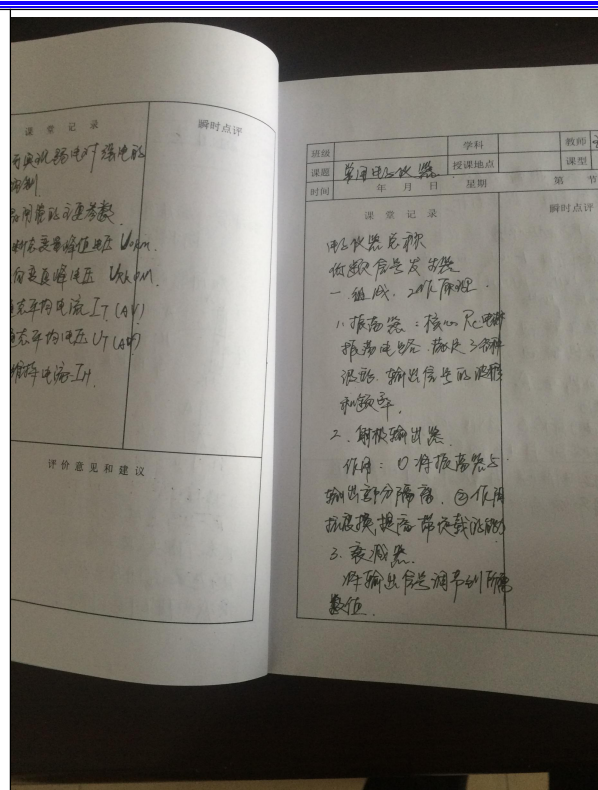 课堂记录
瞬时点评
弱电对强电的
控制
用管的主要参数
断态重复峰值电压 UDRM.
向重复峰值电压 URRM.
态平均电流 IT (AV)
态平均电压 UT (AV)
维持电流 IH
评价意见和建议
班级
学科
教师
课题
常用电子仪器
授课地点
课型
时间
年 月 日
星期
第 节
课堂记录
瞬时点评
电子仪器名称
低频信号发生器
一. 组成. 工作原理.
1. 振荡器: 核心 RC
振荡电路. 输出信号的波形
和频率.
2. 射极输出器.
作用: ①将振荡器与
输出部分隔离. ②作阻
抗变换,提高带负载的能力
3. 衰减器.
将输出信号调节到所需
数值.